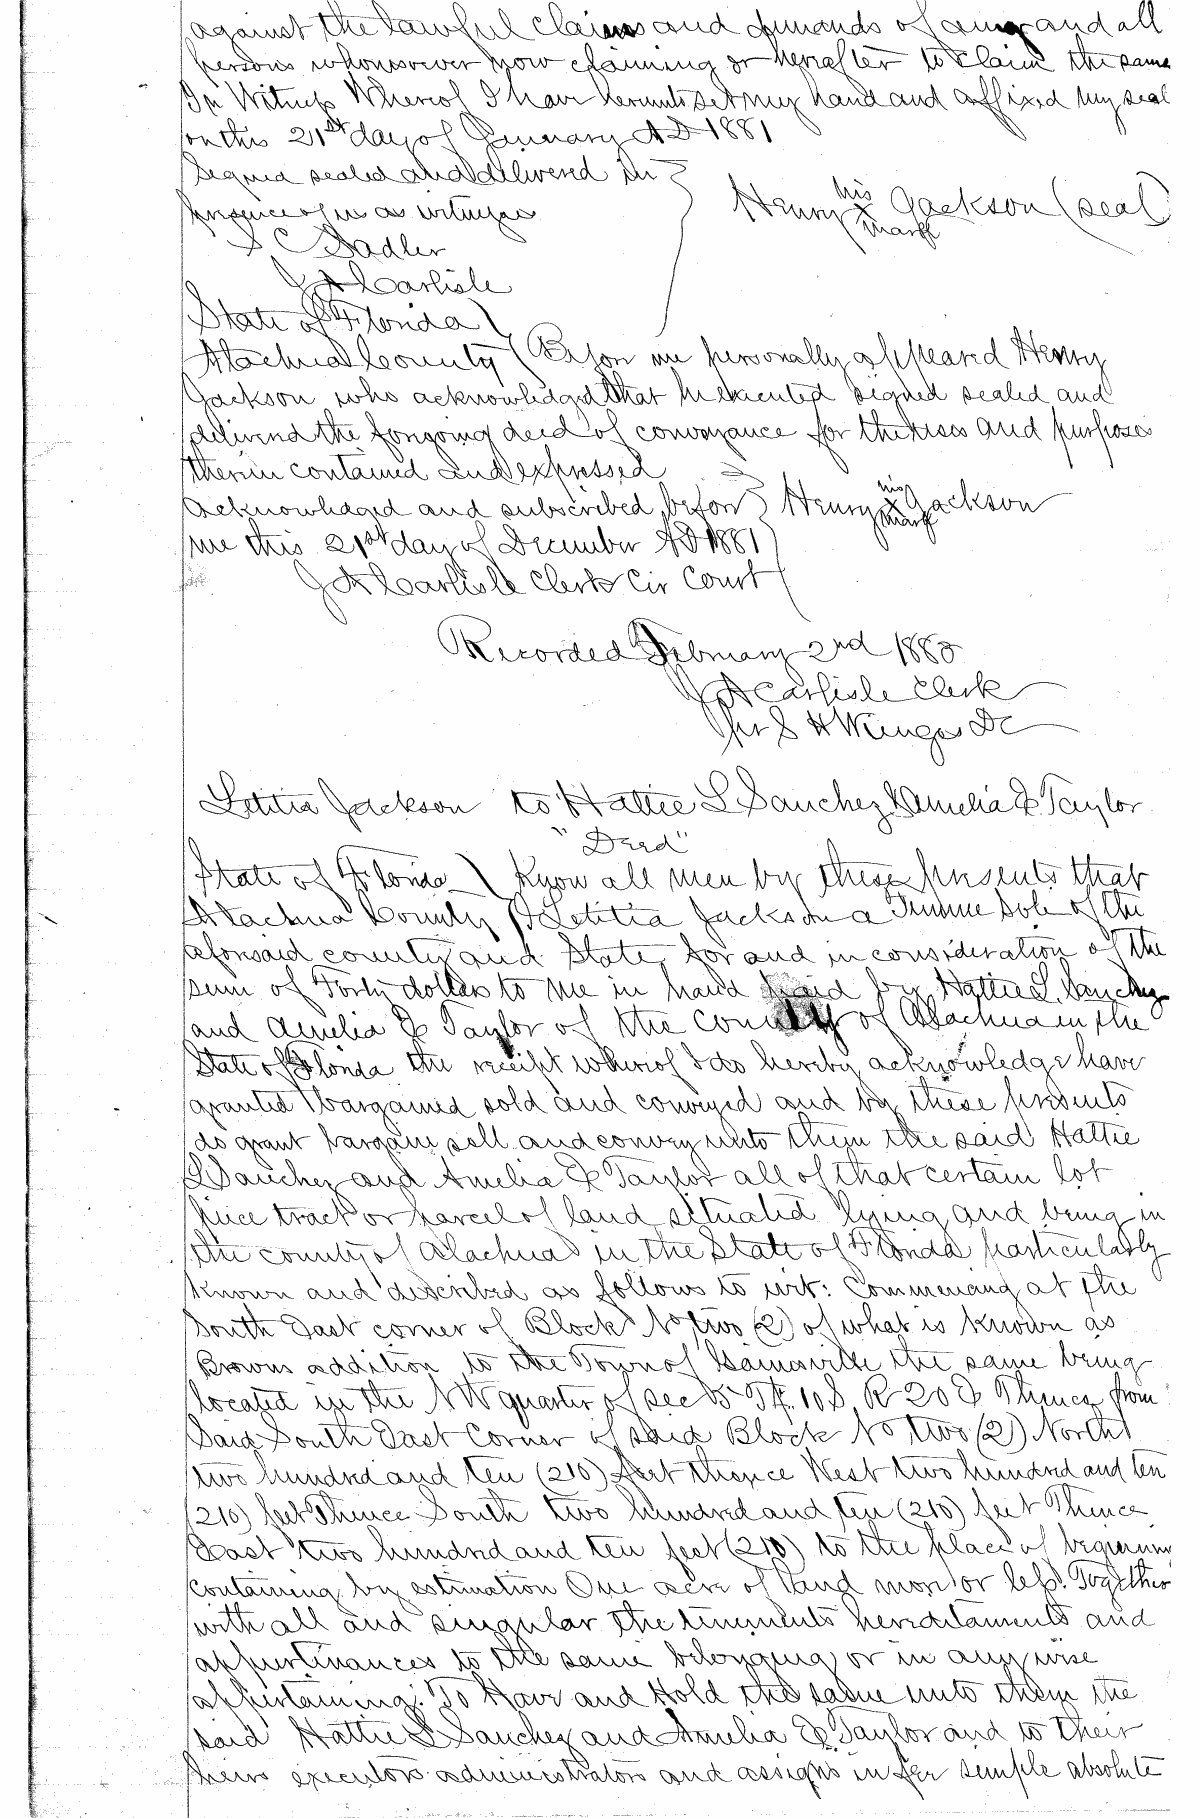 against the lawful claims and demands of any and all
persons whomsoever now claiming or hereafter to claim the same
In Witness Whereof I have hereunto set my hand and affixed my seal
on this 21st day of January AD 1881
Signed sealed and delivered in
presence of us as witnesses
Henry his x mark Jackson (seal)
S C Sadler
J A Carlisle
State of Florida
Alachua County Before me personally appeared Henry
Jackson who acknowledged that he executed signed sealed and
delivered the foregoing deed of conveyance for the uses and purposes
therein contained and expressed
Acknowledged and subscribed before Henry his x mark Jackson
me this 21st day of December AD 1881
J A Carlisle Clerk Cir Court
Recorded February 2nd 1883
J A Carlisle Clerk
per S H Wienges DC
Letitia Jackson to Hattie L Sanchez & Amelia E Taylor
"Deed"
State of Florida Know all men by these presents that
Alachua County I Letitia Jackson a Femme Sole of the
aforesaid county and State for and in consideration of the
sum of Forty dollars to me in hand paid by Hattie L. Sanchez
and Amelia E Taylor of the county of Alachua in the
State of Florida the receipt whereof I do hereby acknowledge have
granted bargained sold and conveyed and by these presents
do grant bargain sell and convey unto them the said Hattie
L Sanchez and Amelia E Taylor all of that certain lot
piece tract or parcel of land situated lying and being in
the county of Alachua in the State of Florida particularly
known and described as follows to wit: Commencing at the
South East corner of Block No two (2) of what is known as
Browns addition to the Town of Gainesville the same being
located in the NW quarter of sec 5 Tp. 10 S, R 20 E Thence from
Said South East Corner of said Block No two (2) North
two hundred and ten (210) feet thence West two hundred and ten
(210) feet Thence South two hundred and ten (210) feet Thence
East two hundred and ten feet (210) to the place of beginning
containing by estimation One acre of land more or less. Together
with all and singular the tenements hereditaments and
appurtinances to the same belonging or in any wise
appertaining. To Have and Hold the same unto them the
said Hattie L Sanchez and Amelia E Taylor and to their
heirs executors administrators and assigns in fee simple absolute